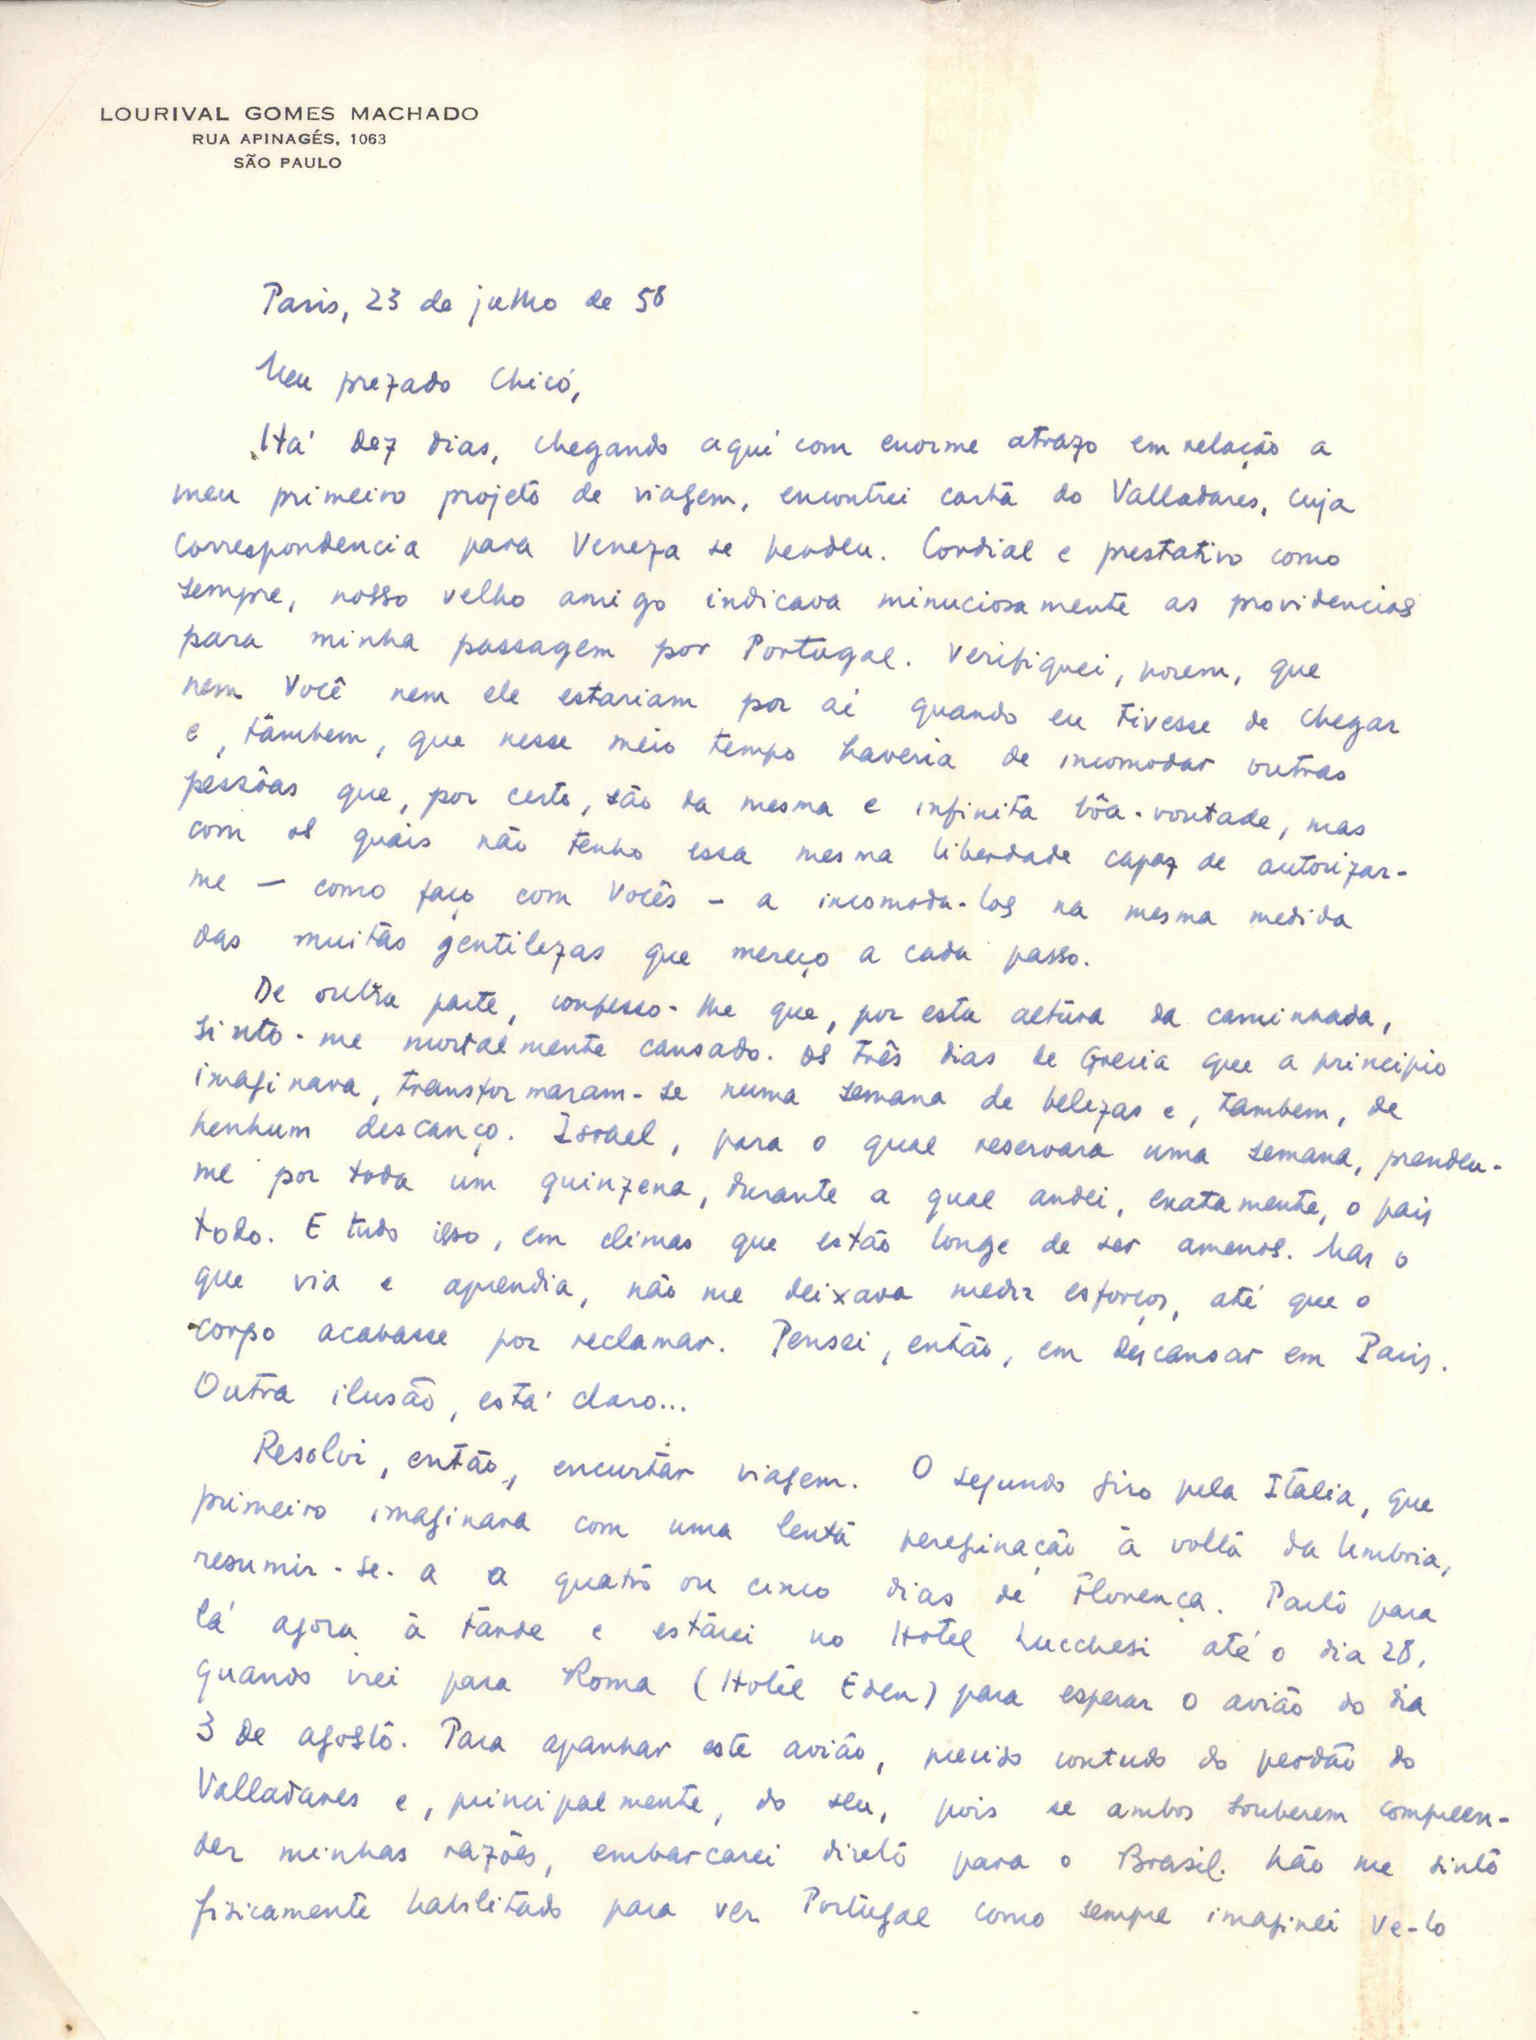 LOURIVAL GOMES MACHADO
RUA APINAGÉS, 1063
SÃO PAULO
Paris, 23 de julho de 58
Meu prezado Chicó,
Há dez dias, chegando aqui com enorme atrazo em relação a
meu primeiro projeto de viagem, encontrei carta do Valladares, cuja
correspondencia para Veneza se perdeu. Cordial e prestativo como
sempre, nosso velho amigo indicava minuciosamente as providencias
para minha passagem por Portugal. Verifiquei, porem, que
nem Você nem ele estariam por aí quando eu tivesse de chegar
e, tambem, que nesse meio tempo haveria de incomodar outras
pessôas que, por certo, são da mesma e infinita bôa-vontade, mas
com os quais não tenho essa mesma liberdade capaz de autorizar-
me — como faço com Vocês — a incomoda-los na mesma medida
das muitas gentilezas que mereço a cada passo.
De outra parte, confesso-lhe que, por esta altura da caminhada,
sinto-me mortalmente cansado. Os três dias de Grecia que a principio
imaginara, transformaram-se numa semana de belezas e, tambem, de
nenhum descanço. Israel, para o qual reservara uma semana, prendeu-
me por toda um quinzena, durante a qual andei, exatamente, o pais
todo. E tudo isso, em climas que estão longe de ser amenos. Mas o
que via e aprendia, não me deixava medir esforços, até que o
corpo acabasse por reclamar. Pensei, então, em descansar em Paris.
Outra ilusão, está claro...
Resolvi, então, encurtar viagem. O segundo giro pela Italia, que
primeiro imaginara com uma lenta pereginação à volta da Umbria,
resumir-se-a a quatro ou cinco dias de Florença. Parto para
lá agora à tarde e estarei no Hotel Lucchesi até o dia 28,
quando irei para Roma (Hotel Eden) para esperar o avião do dia
3 de agosto. Para apanhar este avião, preciso contudo do perdão do
Valladares e, principalmente, do seu, pois se ambos souberem compreen-
der minhas razões, embarcarei direto para o Brasil. Não me sinto
fisicamente habilitado para ver Portugal como sempre imaginei ve-lo